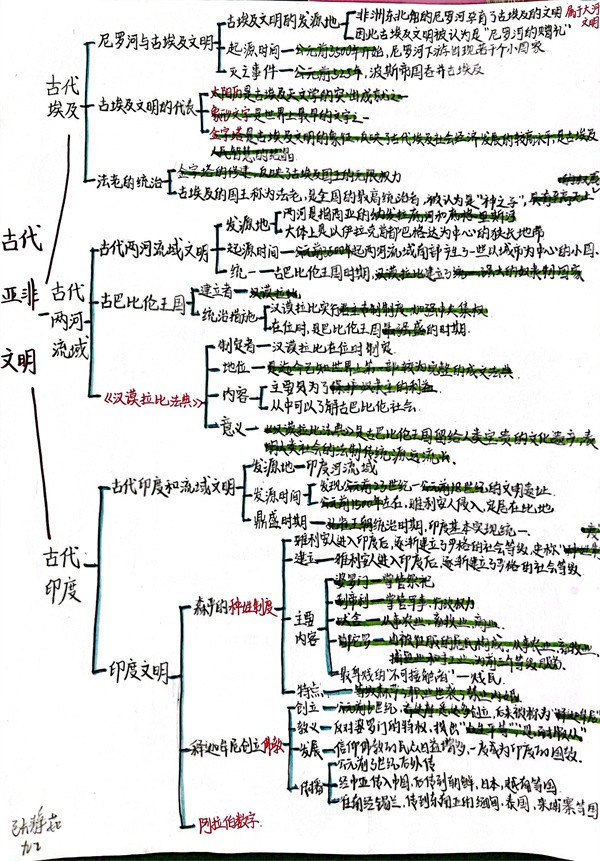 古代亚非文明
古代埃及
尼罗河与古埃及文明
古埃及文明的发源地
非洲东北部的尼罗河孕育了古埃及的文明
属于大河文明
因此古埃及文明被认为是"尼罗河的赠礼"
起源时间
公元前3500年开始,尼罗河下游出现若干个小国家
灭亡事件
公元前525年,波斯帝国吞并古埃及
古埃及文明的代表
太阳历是古埃及天文学的突出成就之一
象形文字是世界上最早的文字之一
金字塔是古埃及文明的象征,反映了古代埃及社会经济发展的较高水平,是古埃及
人民智慧的结晶
法老的统治
金字塔的修建,反映了古埃及国王的无限权力
古埃及的国王称为法老,是全国的最高统治者,被认为是"神之子",
古代两河流域
古代两河流域文明
发源地
两河是指西亚的幼发拉底河和底格里斯河
大体上是以伊拉克首都巴格达为中心的狭长地带
起源时间
公元前3500年起两河流域南部产生了一些以城市为中心的小国.
统一
古巴比伦王国时期,汉谟拉比建立了统一强大的奴隶制国家
古巴比伦王国
建立者
汉谟拉比
统治措施
汉谟拉比实行君主专制制度,加强中央集权
在位时,是巴比伦王国最强盛的时期.
《汉谟拉比法典》
制定者
汉谟拉比在位时制定.
地位
是迄今已知世界上第一部较为完整的成文法典
内容
主要是为了维护奴隶主的利益.
从中可以了解古巴比伦社会.
意义
《汉谟拉比法典》是古巴比伦王国留给人类宝贵的文化遗产,表
明人类社会的法制传统源远流长.
古代印度
古代印度和流域文明
发源地
印度河流域
发源时间
发现公元前23世纪一公元前18世纪的文明遗址.
公元前1500年左右,雅利安人侵入,定居在此地
鼎盛时期
孔雀王朝统治时期,印度基本实现统一.
印度文明
森严的种姓制度
雅利安人进入印度后,逐渐建立了严格的社会等级,史称
建立
雅利安人进入印度后,逐渐建立了严格的社会等级
主要内容
婆罗门
掌管祭祀
刹帝利
掌管军事、行政权力
吠舍
从事农业、畜牧业、商业
首陀罗
由被征服的居民构成,从事农业、畜牧业、
捕鱼业和手工业,为前三个等级服务.
最卑贱的"不可接触者"
贱民
特点
等级森严,职业世袭,
释迦牟尼创立佛教
创立
公元前6世纪,乔达摩·悉达多创立,后来被称为"释迦牟尼"
教义
反对婆罗门的特权,提出"众生平等"
发展
信仰佛教的民众日益增多,一度成为印度的国教
传播
公元前3世纪后外传
经中亚传入中国,后传到朝鲜,日本,越南等国
往南经锡兰,传到东南亚的缅甸、泰国、柬埔寨等国
阿拉伯数字